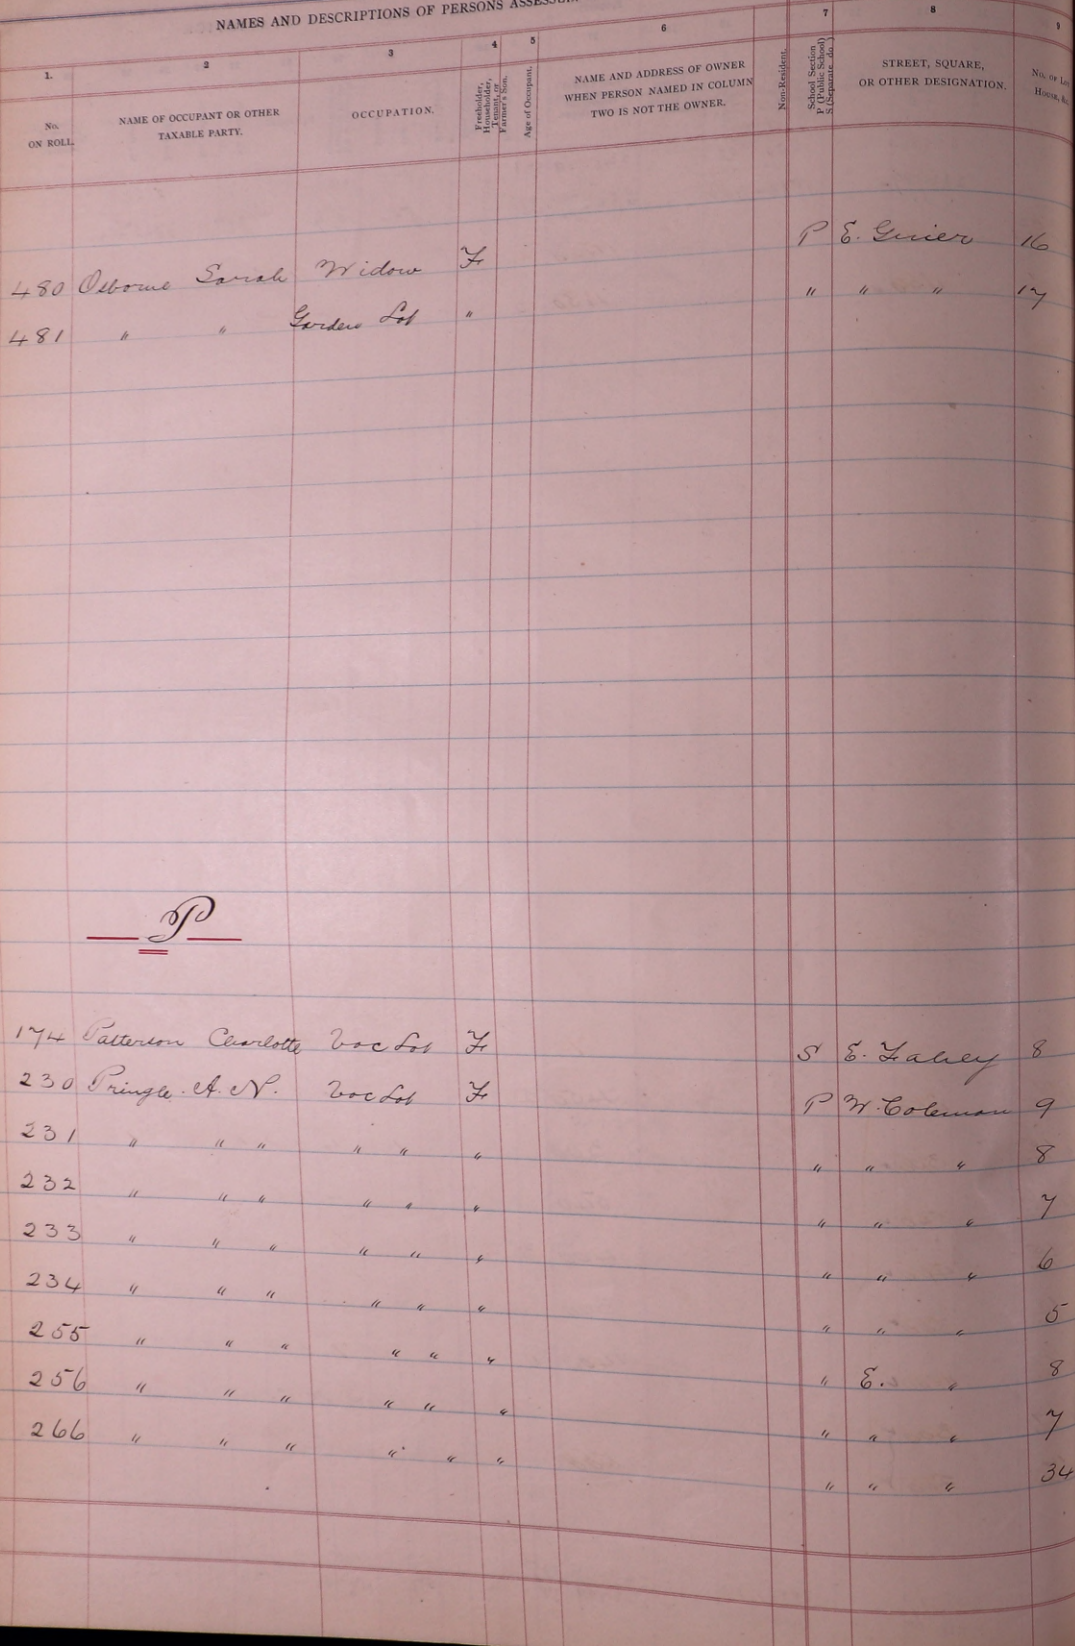 NAMES AND DESCRIPTIONS OF PERSONS ASSESSE
1. 2 3 4 5 6 7 8 9
No. ON ROLL.
NAME OF OCCUPANT OR OTHER TAXABLE PARTY.
OCCUPATION.
Freeholder, Householder, Tenant, or Farmer's Son.
Age of Occupant.
NAME AND ADDRESS OF OWNER WHEN PERSON NAMED IN COLUMN TWO IS NOT THE OWNER.
Non-Resident.
School Section P (Public School) S (Separate do.)
STREET, SQUARE, OR OTHER DESIGNATION.
No. of Lot, House, &c.
480 Osborne Sarah Widow F P E. Grier 16
481 " " Garden Lot " " " " 17
P
174 Patterson Charlotte Vac Lot F S E. Fahey 8
230 Pringle A. N. Vac Lot F P W. Coleman 9
231 " " " " " " " " " 8
232 " " " " " " " " " 7
233 " " " " " " " " " 6
234 " " " " " " " " " 5
255 " " " " " " " E. " 8
256 " " " " " " " " " 7
266 " " " " " " " " " 34